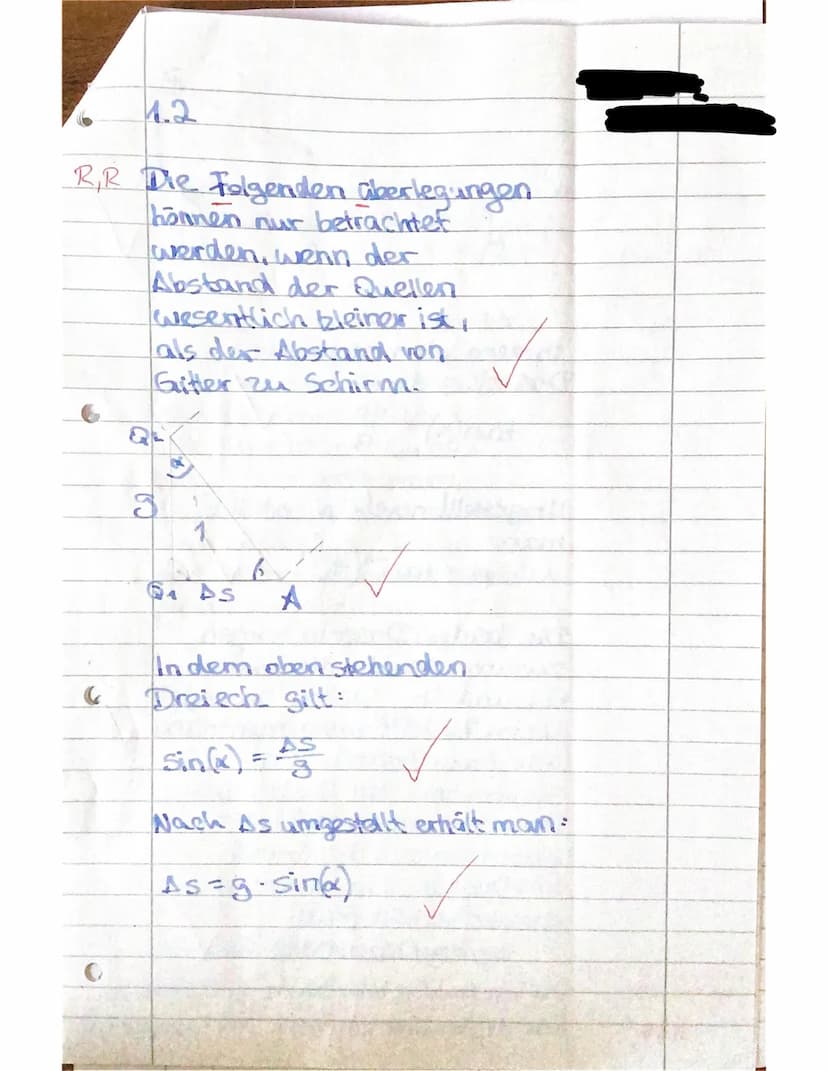 1.2
R,R Die Folgenden überlegungen
können nur betrachtet
werden, wenn der
Abstand der Quellen
wesentlich kleiner ist,
als der Abstand von
Gitter zu Schirm.
Q2
α
g
1
Q1 Δs A
In dem oben stehenden
Dreieck gilt:
sin(α) = Δs/g
Nach Δs umgestellt erhält man:
Δs = g · sin(α)